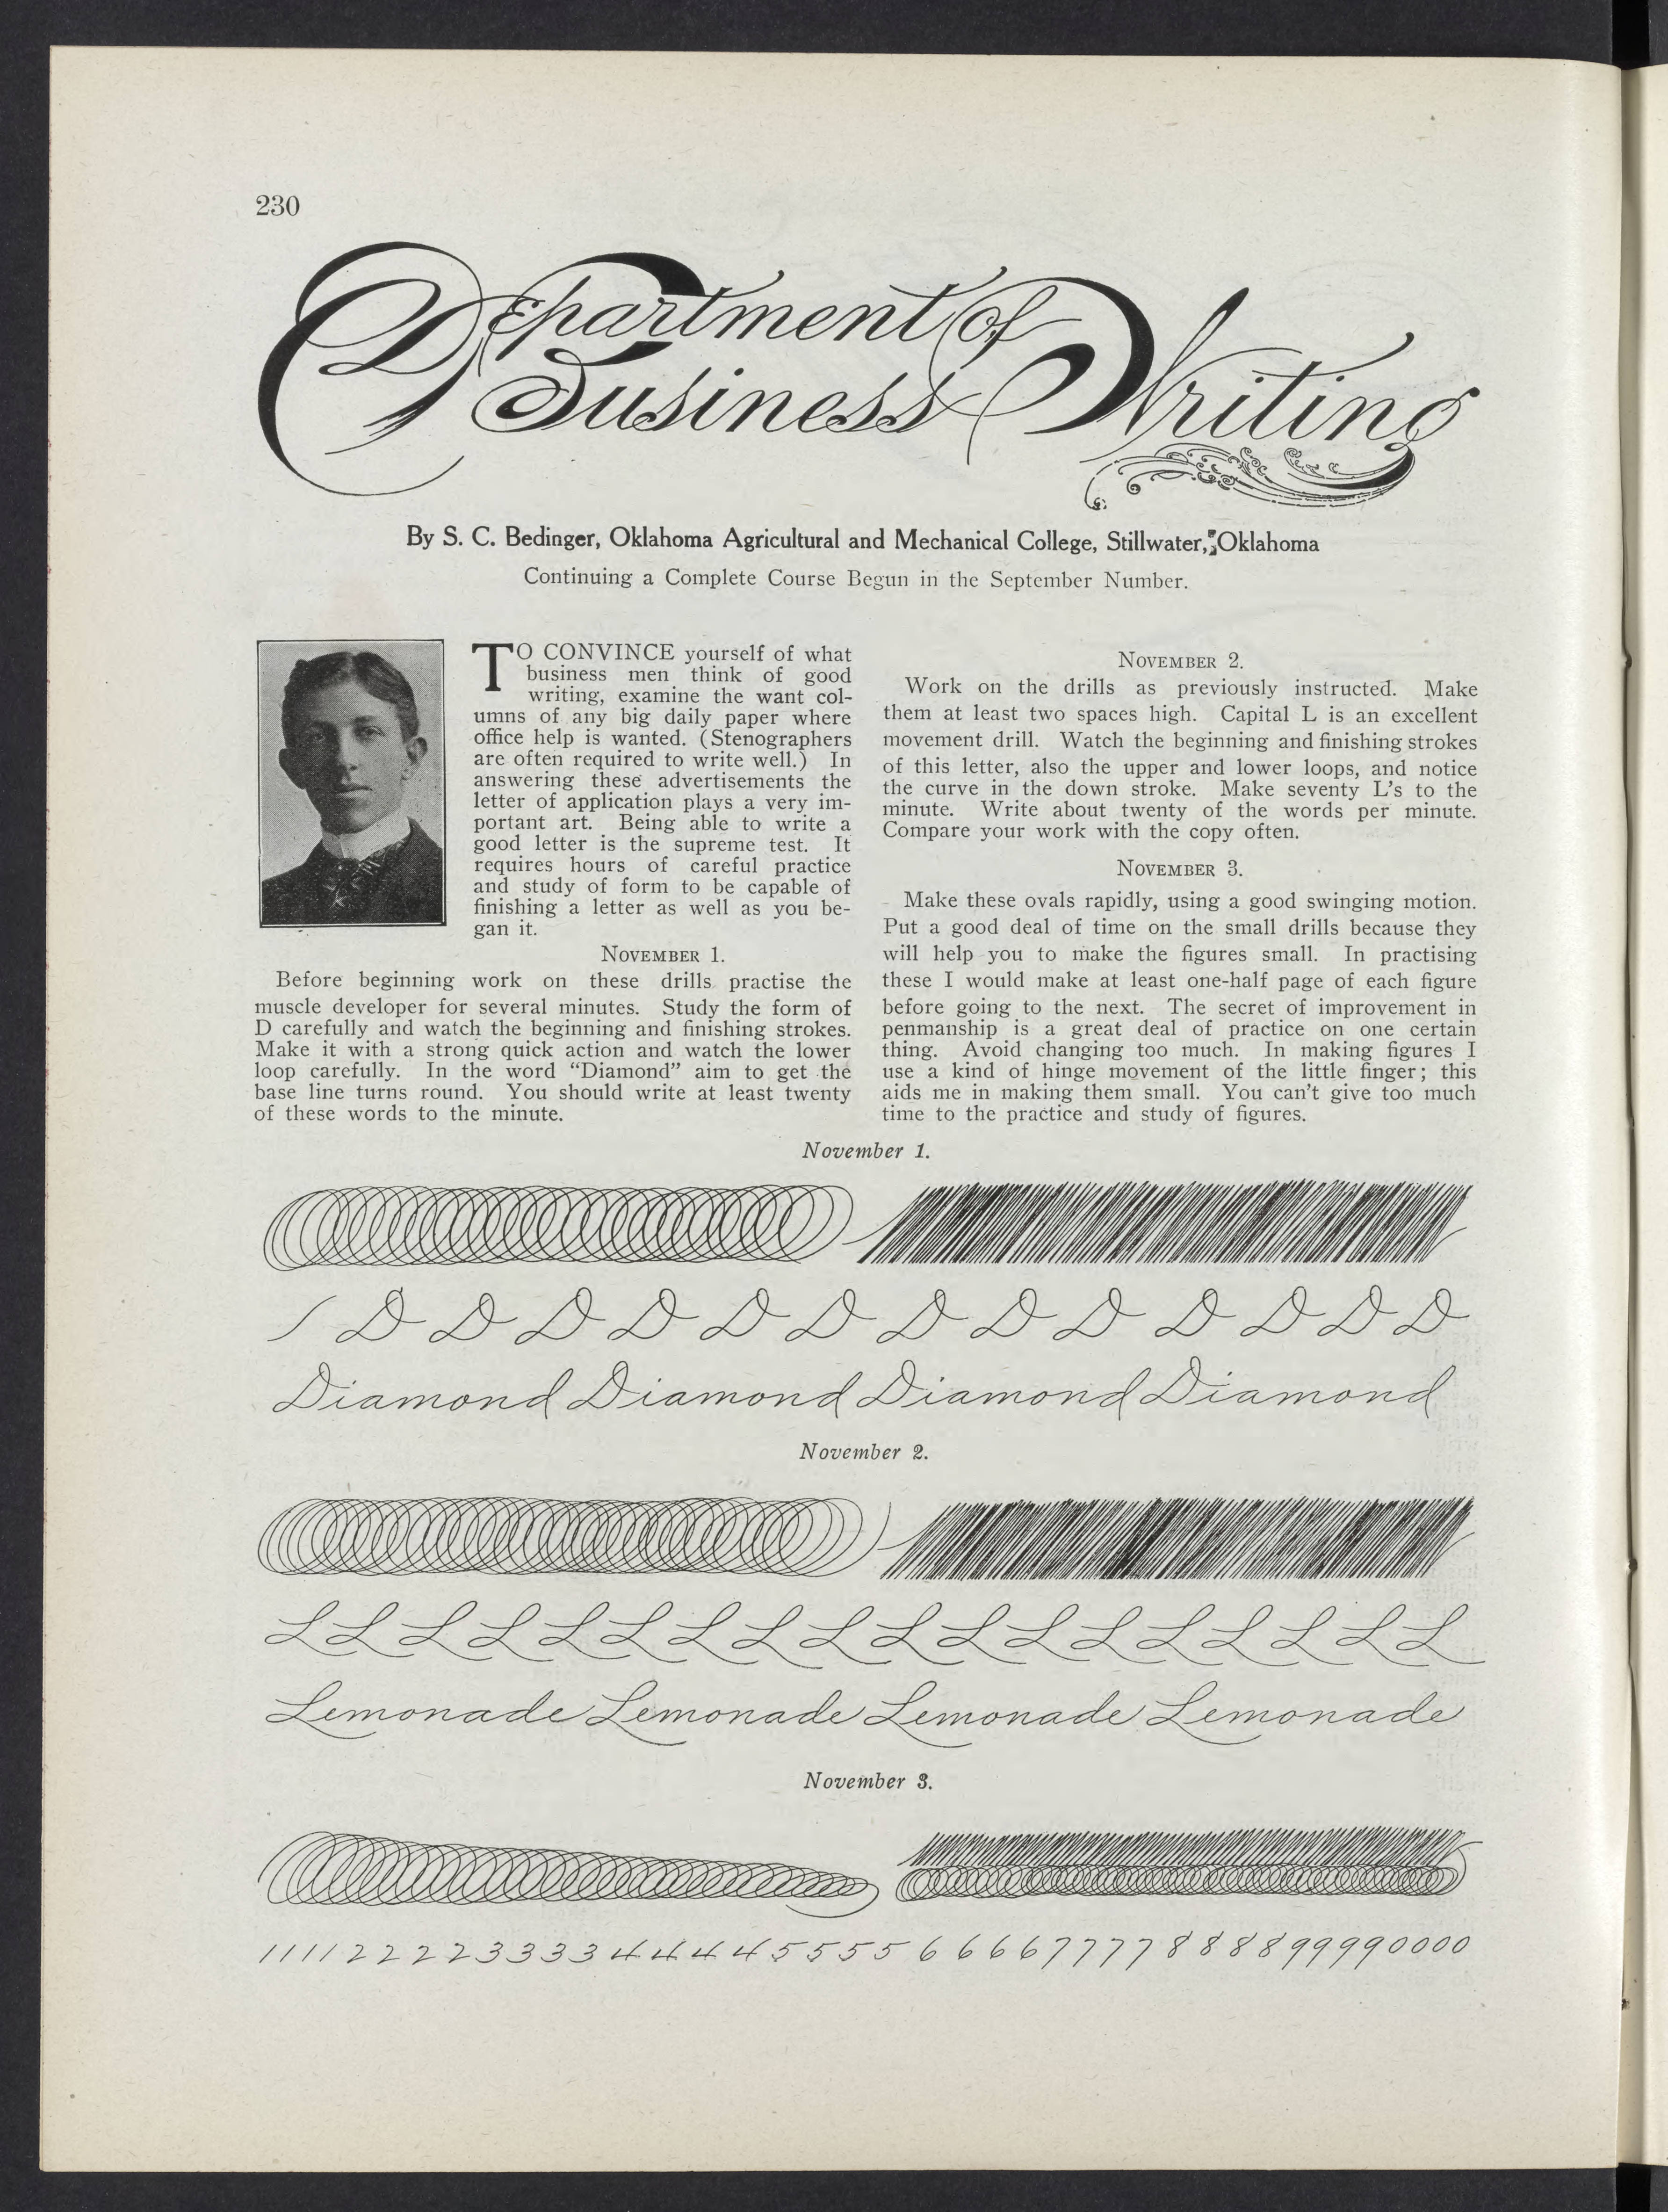 230
Department of
Business Writing
By S. C. Bedinger, Oklahoma Agricultural and Mechanical College, Stillwater, Oklahoma
Continuing a Complete Course Begun in the September Number.
TO CONVINCE yourself of what
business men think of good
writing, examine the want col-
umns of any big daily paper where
office help is wanted. (Stenographers
are often required to write well.) In
answering these advertisements the
letter of application plays a very im-
portant art. Being able to write a
good letter is the supreme test. It
requires hours of careful practice
and study of form to be capable of
finishing a letter as well as you be-
gan it.
November 1.
Before beginning work on these drills practise the
muscle developer for several minutes. Study the form of
D carefully and watch the beginning and finishing strokes.
Make it with a strong quick action and watch the lower
loop carefully. In the word “Diamond” aim to get the
base line turns round. You should write at least twenty
of these words to the minute.
November 2.
Work on the drills as previously instructed. Make
them at least two spaces high. Capital L is an excellent
movement drill. Watch the beginning and finishing strokes
of this letter, also the upper and lower loops, and notice
the curve in the down stroke. Make seventy L’s to the
minute. Write about twenty of the words per minute.
Compare your work with the copy often.
November 3.
Make these ovals rapidly, using a good swinging motion.
Put a good deal of time on the small drills because they
will help you to make the figures small. In practising
these I would make at least one-half page of each figure
before going to the next. The secret of improvement in
penmanship is a great deal of practice on one certain
thing. Avoid changing too much. In making figures I
use a kind of hinge movement of the little finger; this
aids me in making them small. You can’t give too much
time to the practice and study of figures.
November 1.
D D D D D D D D D D D D D
Diamond Diamond Diamond Diamond
November 2.
L L L L L L L L L L L L L L L L L L
Lemonade Lemonade Lemonade Lemonade
November 3.
1 1 1 1 2 2 2 2 3 3 3 3 4 4 4 4 5 5 5 5 6 6 6 6 7 7 7 7 8 8 8 8 9 9 9 9 0 0 0 0